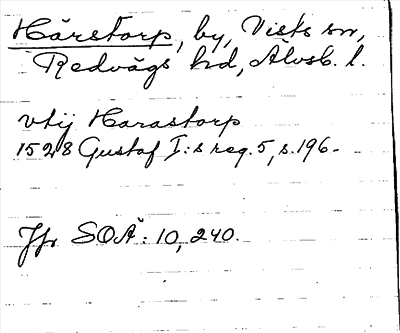 Härstorp, by, Vists sn,
Redvägs hd, Älvsb. l.
vtij Harastorp
1528 Gustaf I:s reg. 5, s. 196.
Jfr SOÄ: 10, 240.